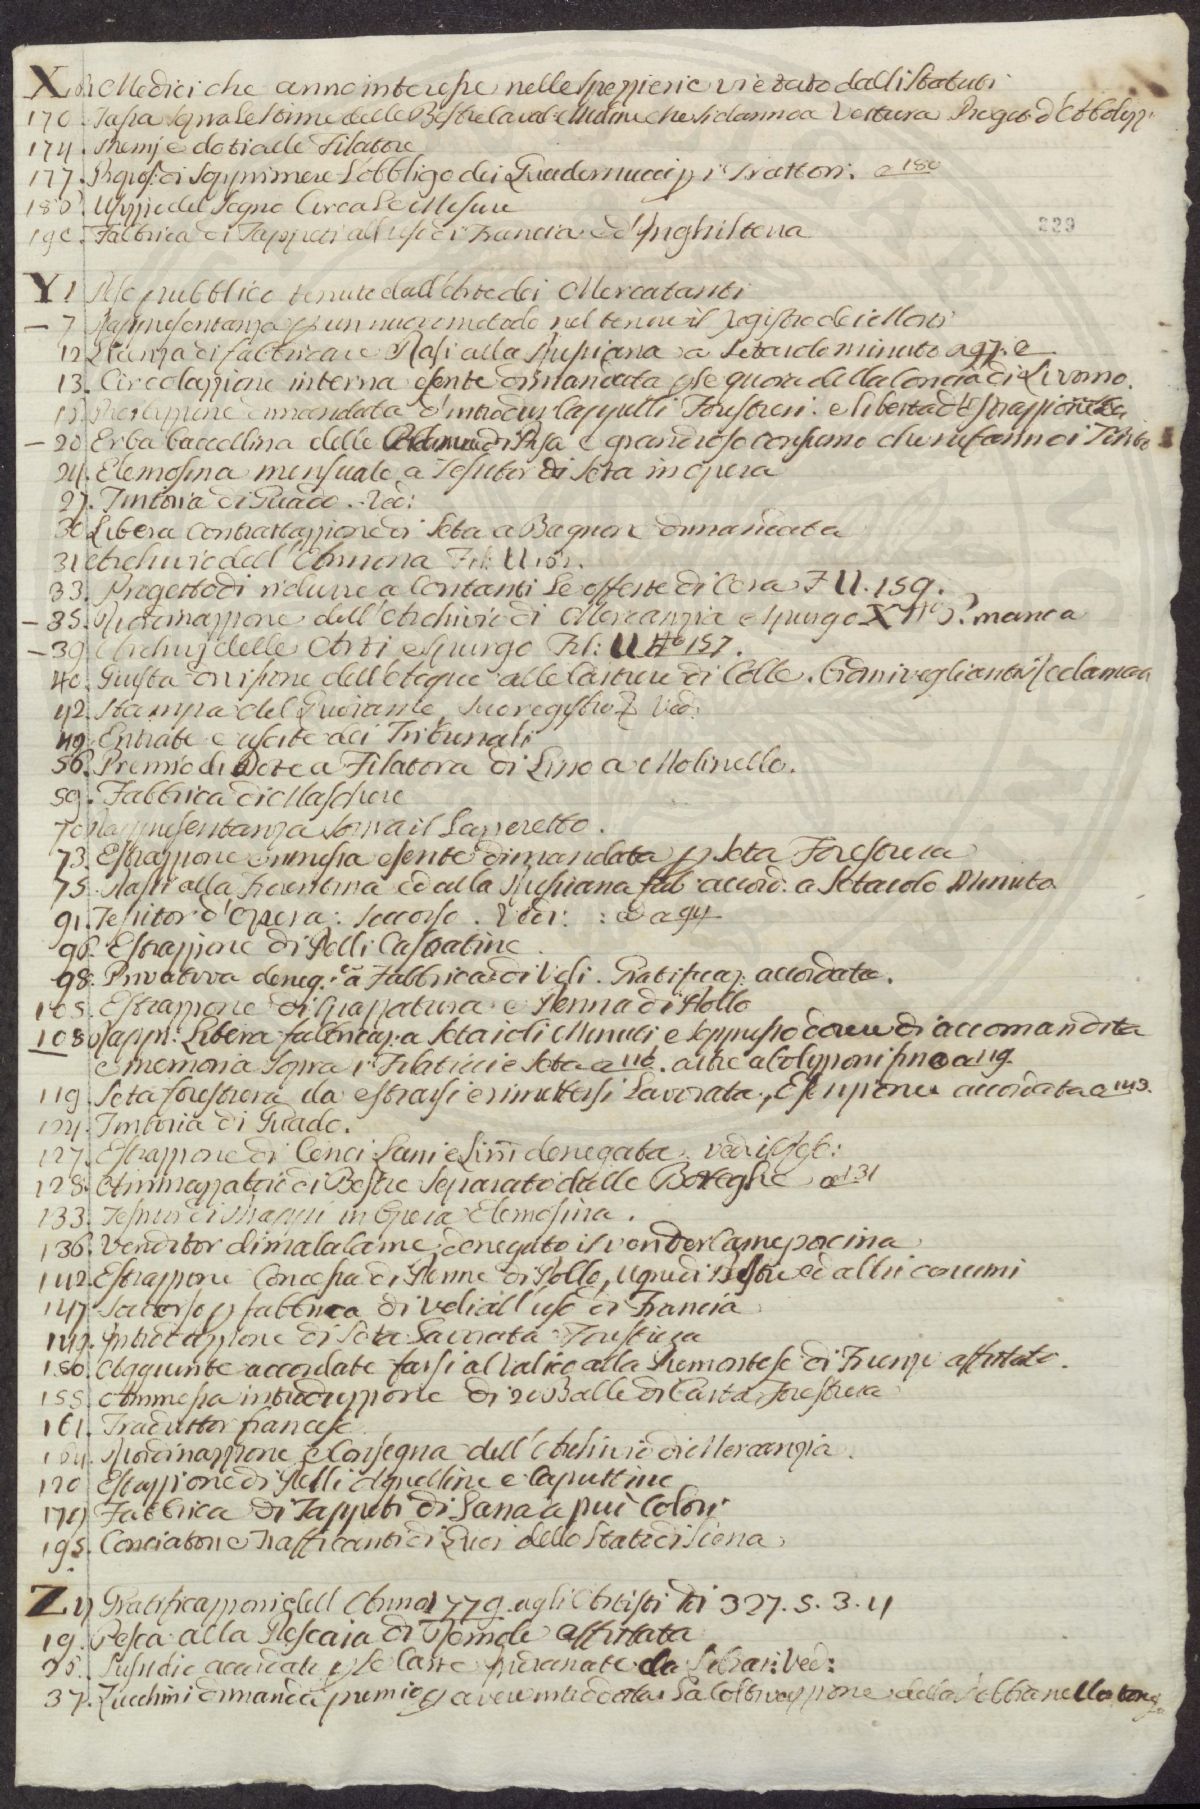 X Medici che anno interesse nelle Spezierie vietato dalli Statuti
170. Tassa sopra le stime delle Bestie che si danno a Vettura
174. Premj e doti alle Filatore
177. Propos: di Sopprimere l'obbligo dei Quadernucci p i Trattori. a 180
180. del Segno Circa le Misure
Fabbrica di Tappeti all'uso di Francia e d'Inghilterra
229
Y 1 Peso pubblico tenuto dall'Arte dei Mercatanti
- 7 Rappresentanza p un nuovo metodo nel tenere il Registro dei Morti
12 Licenza di fabbricare Rasi alla Prussiana a Setaiolo minuto a 97. e
13. Circolazzione interna esente dimandata p le quoia della Concia di Livorno.
15. dimandata d'introdur Cappelli Forestieri. e libertà d'Estrazzione
- 20. Erba baccellina delle di Pisa e grandioso consumo che ne fanno i
24. Elemosina mensuale a Tessitor di Seta in opera
27. Tintoria di Guado. Ved:
30 Libera contrattazzione di Seta a Bagnone dimandata
31 Archivio dell'Annona Fil: U. 151.
33. Progetto di ridurre a Contanti le offerte di Cera F U. 159.
- 35. Riordinazzione dell'Archivio di Mercanzia e spurgo X manca
- 39 Archivj delle Arti e spurgo Fil: U N.o 157.
40. Giusta divisione dell'Acque alle Cartiere di Colle.
42. Stampa del Quoiame, suo registro Z Ved:
49. Entrate e uscite dei Tribunali
56. Premio di Dote a Filatora di Lino a Molinello.
59. Fabbrica di Maschere
70 Rappresentanza sopra il Lazzeretto.
73. Estrazzione e rimessa esente dimandata p Seta Forestiera
75. Rasi alla Fiorentina ed alla Prussiana fab: accord: a Setaiolo Minuto
91. Tessitor d'Opera: soccorso. Vedi: : e a 94
96. Estrazzione di Pelli Castratine
98. Privativa deneg: a Fabbrica di Veli. Gratificaz: accordata.
105. Estrazzione di Grappatura e Penna di Pollo
108 Rappr: Libera fabbricaz: a Setaioli Minuti e di accomandita
e memoria sopra i Filaticci e Seta a 116. altre a 119.
119. Seta forestiera da estrarsi e rimettersi Lavorata, Esenzione accordata a 143.
124. Tintoria di Guado.
127. Estrazzione di Cenci Lani e Lini denegata. vedi
128. Ammazzatoio di Bestie Separato dalle Botteghe a 131
133. Tessitor di in Opera Elemosina.
136. Venditor di mala carne, denegato il vender carne pecorina
142. Estrazzione Concessa di Penne di Pollo, Ugne di Bestie ed altri concimi
147. Soccorso p fabbrica di Veli all'uso di Francia
149. Introduzzione di Seta Lavorata Forestiera
150. Aggiunte accordate farsi al Valico alla Piemontese di Firenze affittato.
155. Ammessa introduzzione di 20 Balle di Carta Forestiera
161. Traduttor francese
164. Riordinazzione e Consegna dell'Archivio di Mercanzia.
170 Estrazzione di Pelli Agnelline e Caprettine
179. Fabbrica di Tappeti di Lana a più Colori
195. Conciatori e Trafficanti di Quoi dello Stato di Siena
Z 4 Gratificazzioni dell'Anno 1779. agli Artisti di 327. 5. 3. 4
19. Pesca alla Pescaia di affittata
Sussidio accordato p le Carte da Ved:
37. Zucchini dimanda premio p avere introdotta la Coltivazzione della